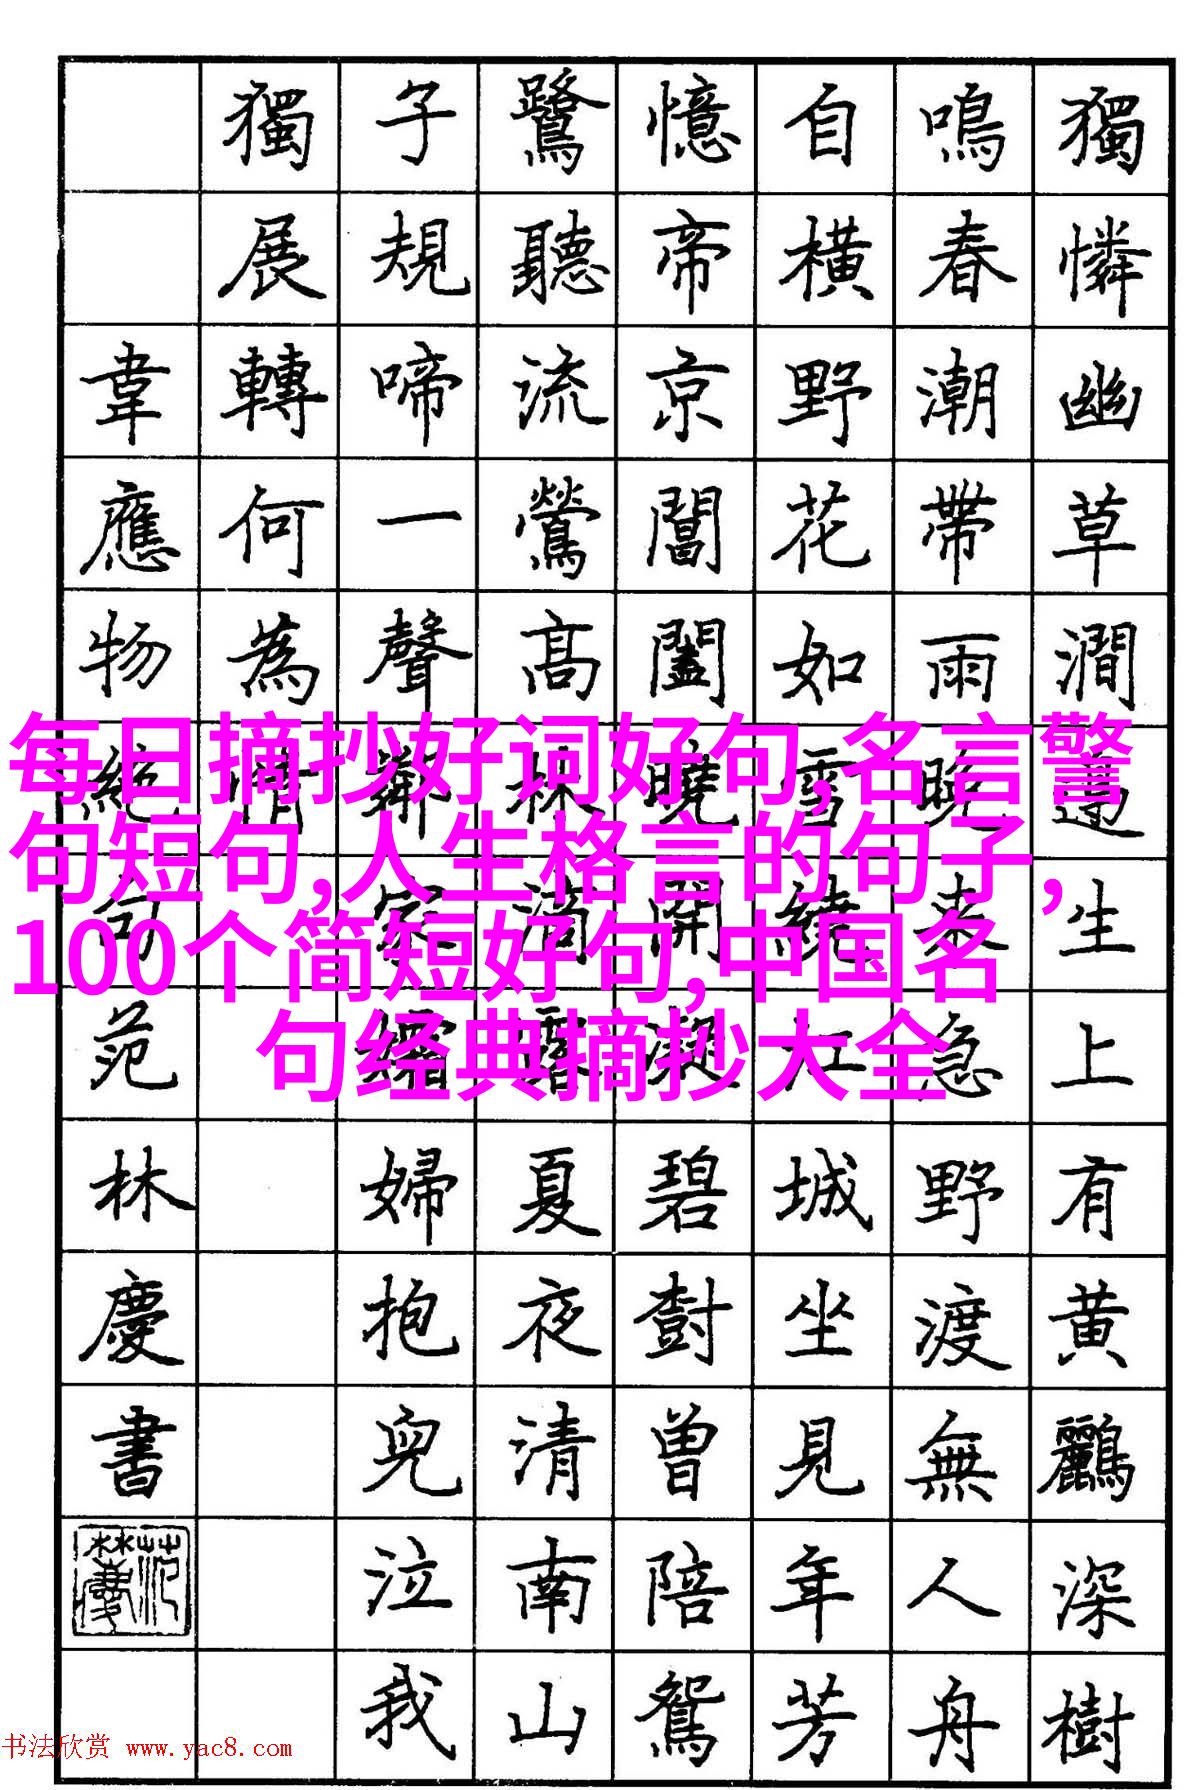 每日摘抄好词好句,名言警
句短句,人生格言的句子,
100个简短好句,中国名
句经典摘抄大全
獨憐幽草澗邊生上有黄鸝深樹
鳴春潮帶雨晚来急野渡無人舟
自橫野花如雪繞江城坐見年芳
憶帝京閶闔曉開凝碧樹曾陪鴛
鷺聽流鶯高林滴露夏夜清南山
子規啼一聲鄰家孀婦抱兒泣我
獨展轉何為情
韋應物絶句范林慶書
书法欣赏 www.yac8.com